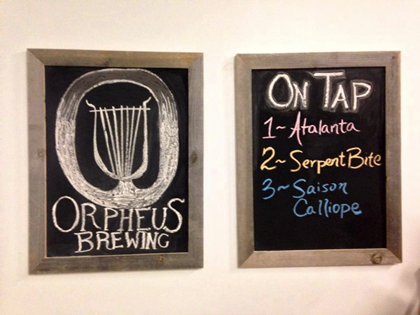 ORPHEUS
BREWING
ON TAP
1~ Atalanta
2~ Serpent Bite
3~ Saison
Calliope